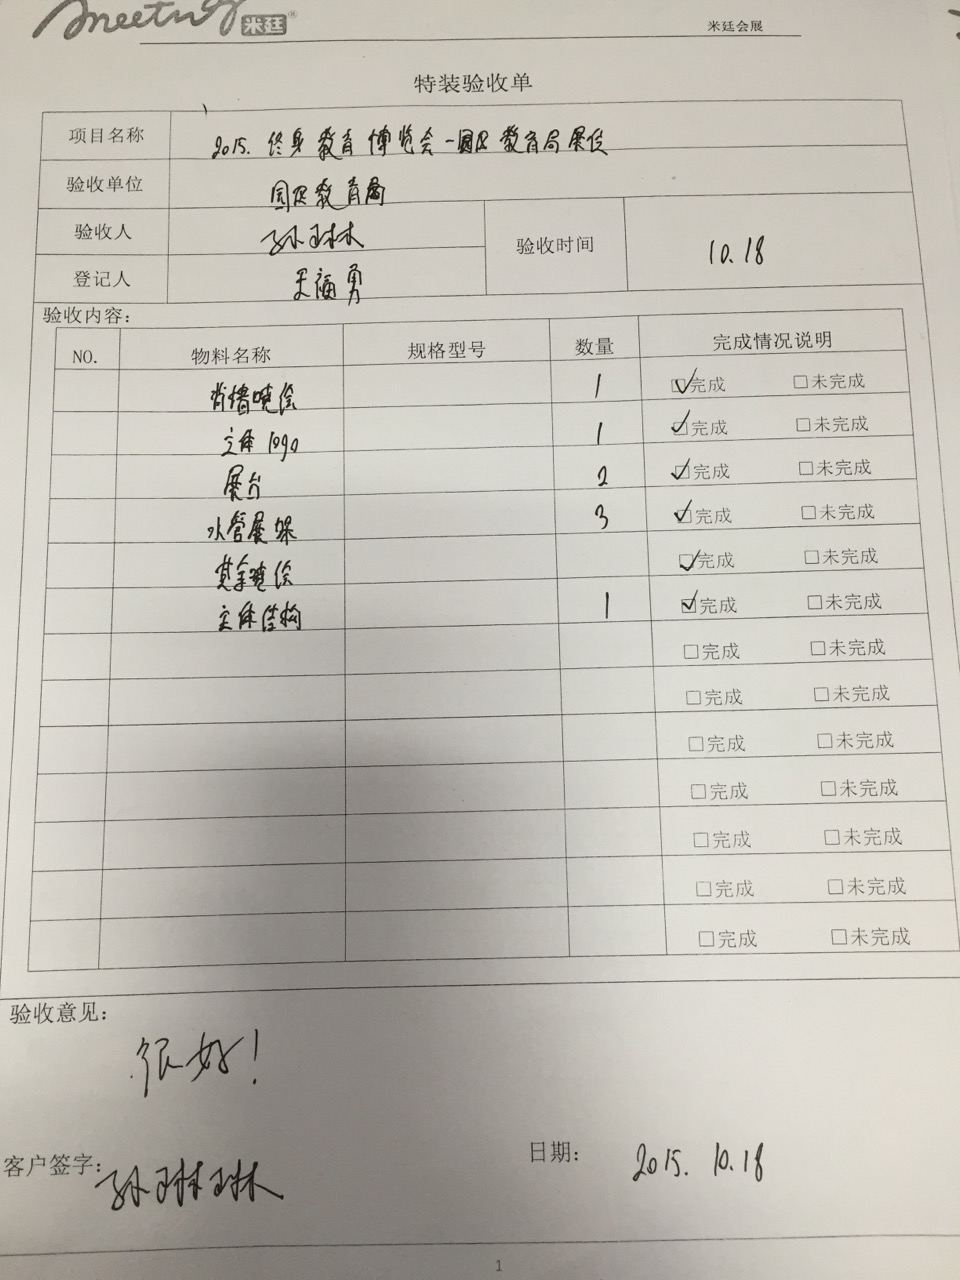 meeting 米廷®
米廷会展
特装验收单
项目名称 2015. 终身教育博览会-园区教育局展位
验收单位 园区教育局
验收人 孙琳
验收时间 10.18
登记人 福勇
验收内容：
NO. 物料名称 规格型号 数量 完成情况说明
背墙喷绘 1 ☑完成 □未完成
立体logo 1 ☑完成 □未完成
展台 2 ☑完成 □未完成
水管展架 3 ☑完成 □未完成
喷绘 ☑完成 □未完成
主体结构 1 ☑完成 □未完成
□完成 □未完成
□完成 □未完成
□完成 □未完成
□完成 □未完成
□完成 □未完成
□完成 □未完成
□完成 □未完成
验收意见：
很好！
客户签字： 孙琳琳
日期： 2015. 10.18
1